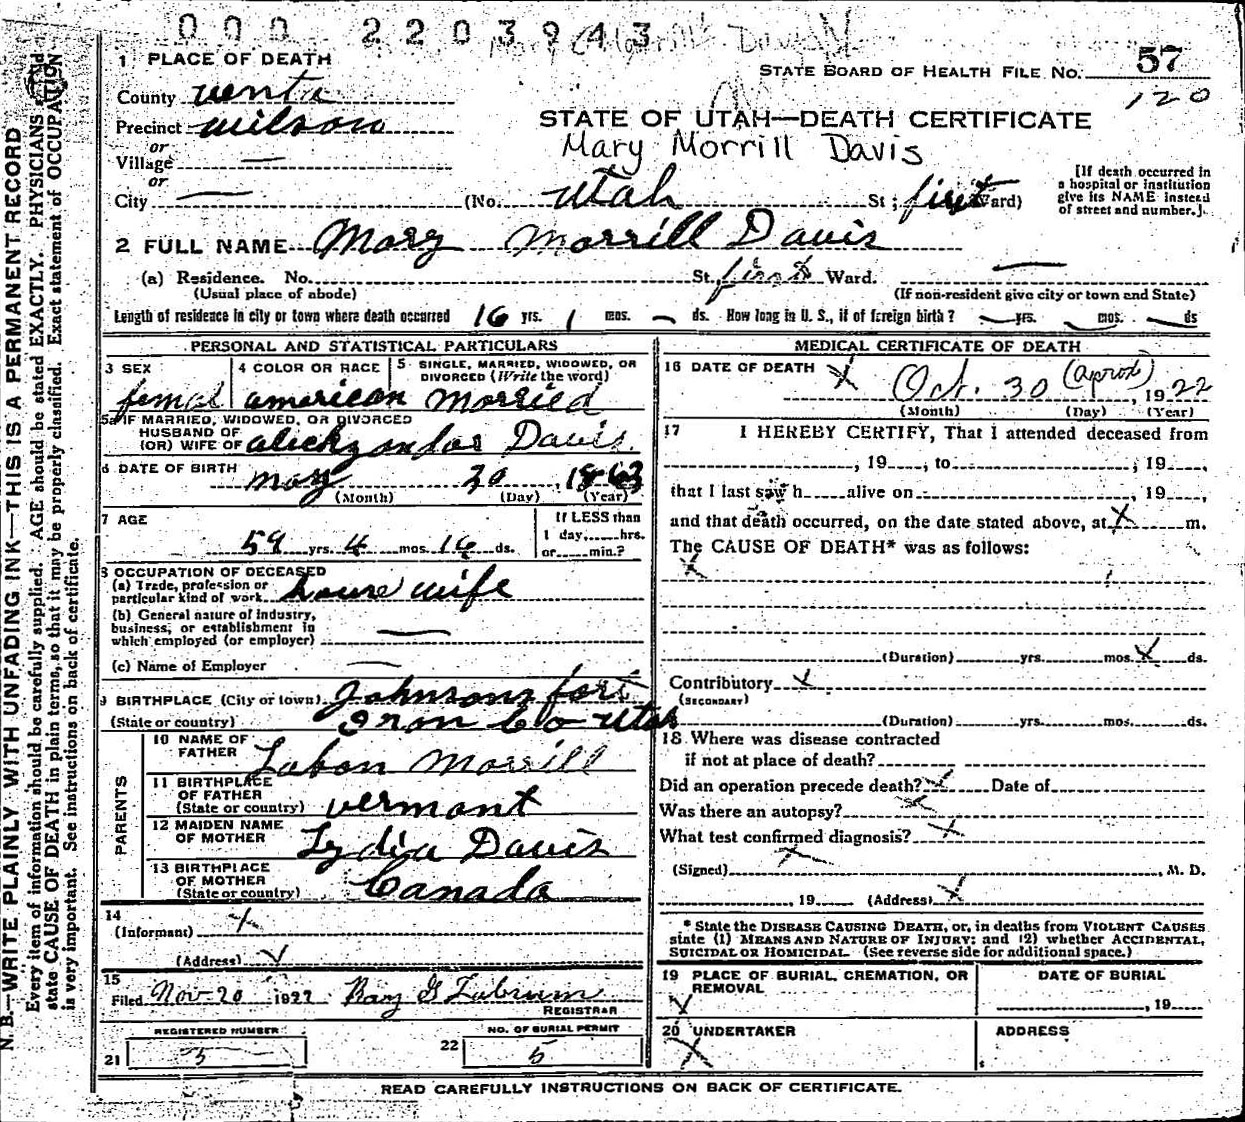 000 2203943
1 PLACE OF DEATH
STATE BOARD OF HEALTH FILE NO. 57
120
County Uenta
Precinct Wilson
or
Village —
or
City —
STATE OF UTAH—DEATH CERTIFICATE
Mary Morrill Davis
[If death occurred in
a hospital or institution
give its NAME instead
of street and number.]
(No. Utah St; first Ward)
2 FULL NAME Mary Morrill Davis
(a) Residence. No. St. first Ward. —
(Usual place of abode)
(If non-resident give city or town and State)
Length of residence in city or town where death occurred 16 yrs. 1 mos. — ds. How long in U. S., if of foreign birth? — yrs. — mos. — ds
PERSONAL AND STATISTICAL PARTICULARS
3 SEX
femal
4 COLOR OR RACE
american
5 SINGLE, MARRIED, WIDOWED, OR
DIVORCED (Write the word)
Married
5a IF MARRIED, WIDOWED, OR DIVORCED
HUSBAND OF
(OR) WIFE OF alickzandar Davis.
6 DATE OF BIRTH
may 20, 1863
(Month) (Day) (Year)
7 AGE
59 yrs. 4 mos. 16 ds.
If LESS than
1 day,....hrs.
or....min.?
8 OCCUPATION OF DECEASED
(a) Trade, profession or
particular kind of work house wife
(b) General nature of industry,
business, or establishment in
which employed (or employer) —
(c) Name of Employer —
9 BIRTHPLACE (City or town) Johnsons fort
(State or country) Iron Co Utah
PARENTS
10 NAME OF
FATHER Laban Morrill
11 BIRTHPLACE
OF FATHER
(State or country) vermont
12 MAIDEN NAME
OF MOTHER Lydia Davis
13 BIRTHPLACE
OF MOTHER
(State or country) Canada
14
(Informant) X
(Address) X
15
Filed Nov 20 1922
REGISTRAR
REGISTERED NUMBER
21 5
NO. OF BURIAL PERMIT
22 5
MEDICAL CERTIFICATE OF DEATH
16 DATE OF DEATH X Oct. 30 (aprox), 1922
(Month) (Day) (Year)
17 I HEREBY CERTIFY, That I attended deceased from
, 19 , to , 19 ,
that I last saw h alive on , 19 ,
and that death occurred, on the date stated above, at X m.
The CAUSE OF DEATH* was as follows:
X
(Duration) yrs. mos. X ds.
Contributory X
(SECONDARY)
(Duration) yrs. mos. ds.
18 Where was disease contracted
if not at place of death?
Did an operation precede death? X Date of
Was there an autopsy? X
What test confirmed diagnosis? X
(Signed) X , M. D.
, 19 (Address) X
* State the DISEASE CAUSING DEATH, or, in deaths from VIOLENT CAUSES
state (1) MEANS AND NATURE OF INJURY; and (2) whether ACCIDENTAL,
SUICIDAL OR HOMICIDAL. (See reverse side for additional space.)
19 PLACE OF BURIAL, CREMATION, OR
REMOVAL
X
DATE OF BURIAL
, 19
20 UNDERTAKER
X
ADDRESS
READ CAREFULLY INSTRUCTIONS ON BACK OF CERTIFICATE.
N. B.—WRITE PLAINLY WITH UNFADING INK—THIS IS A PERMANENT RECORD
Every item of information should be carefully supplied. AGE should be stated EXACTLY. PHYSICIANS should
state CAUSE OF DEATH in plain terms, so that it may be properly classified. Exact statement of OCCUPATION
is very important. See instructions on back of certificate.